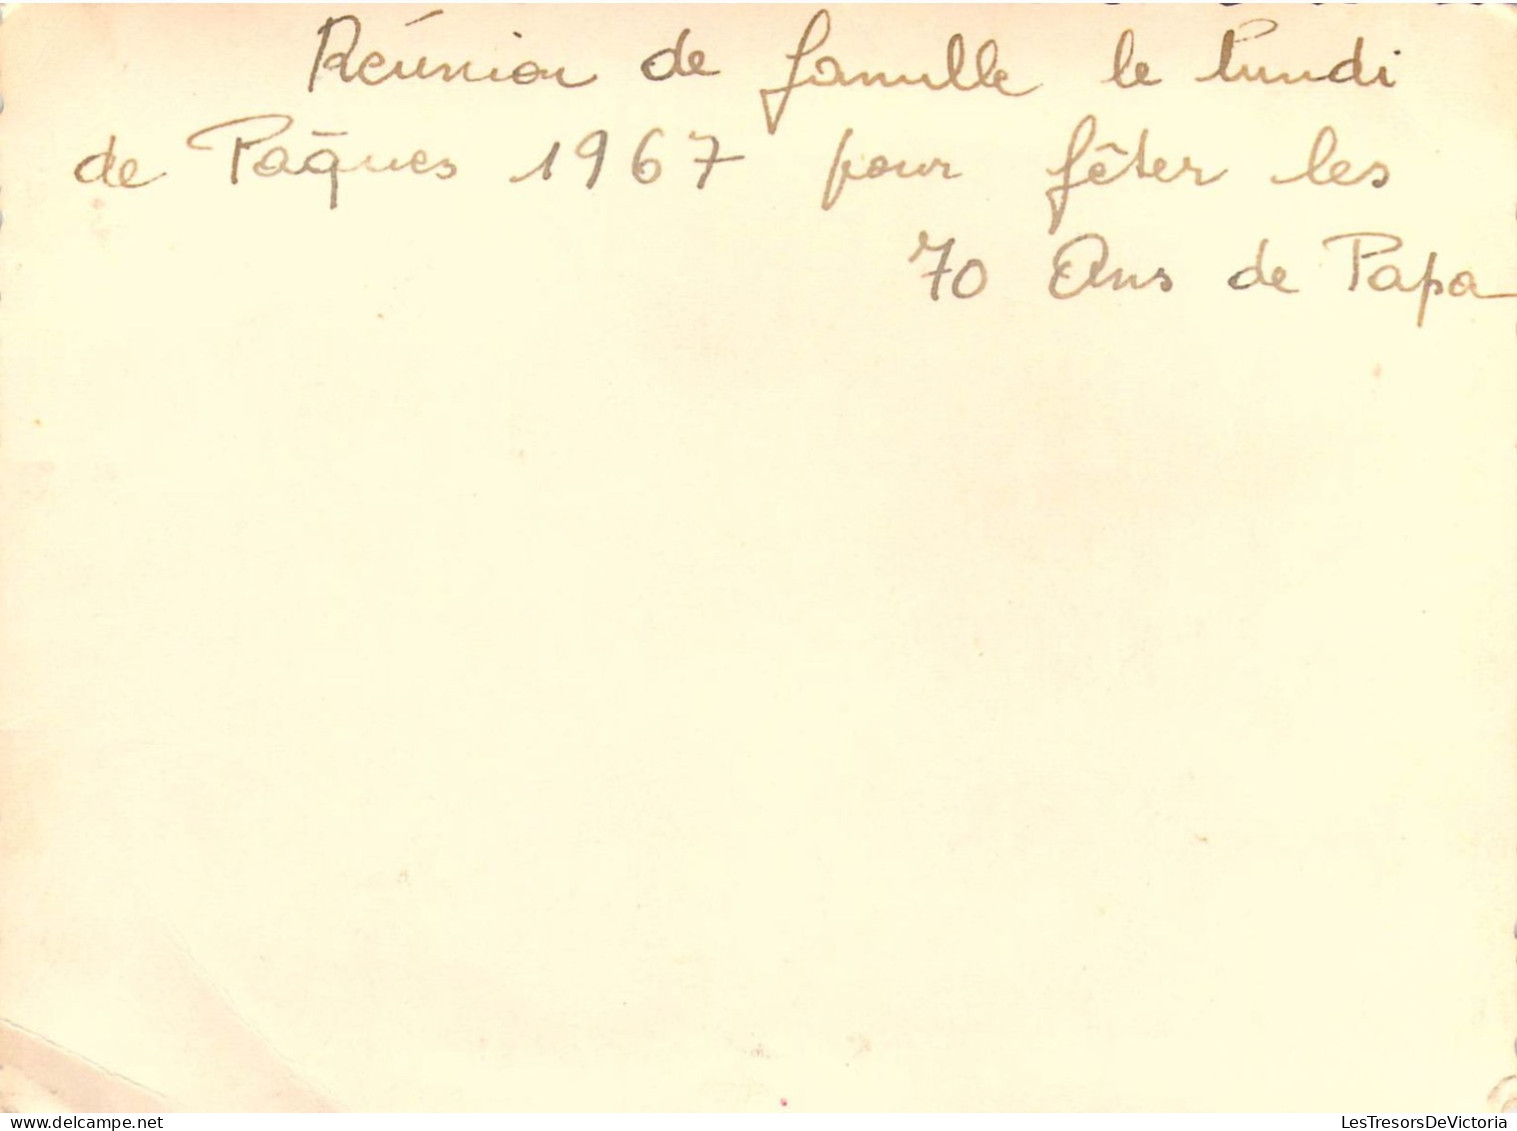 Réunion de famille le lundi
de Pâques 1967 pour fêter les
70 Ans de Papa
delcampe.net
LesTresorsDeVictoria